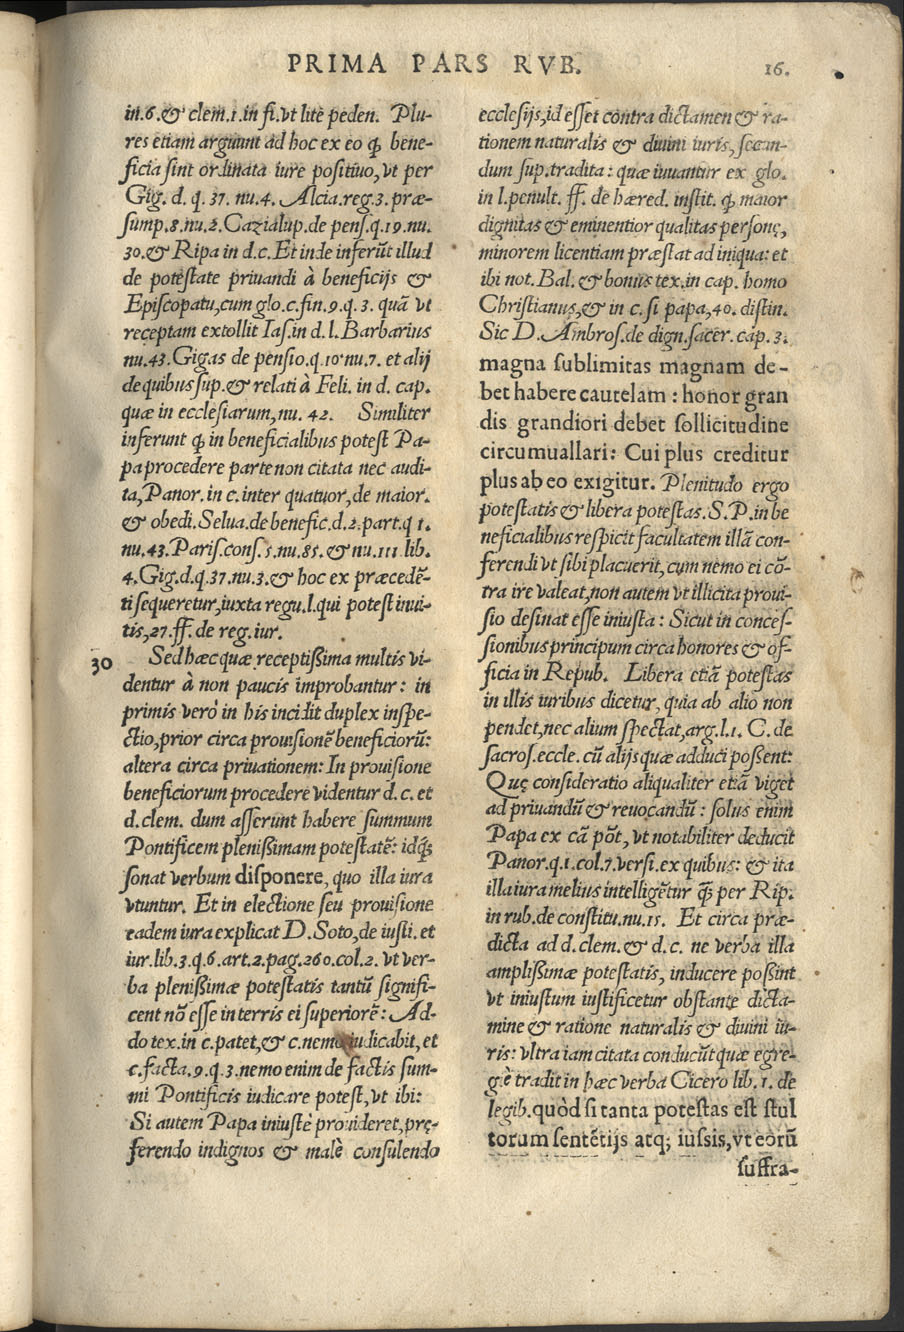 PRIMA PARS RVB.
16.
in.6.& clem.1.in fi.vt lite pēden. Plu-
res etiam arguunt ad hoc ex eo ꝙ bene-
ficia sint ordinata iure positiuo, vt per
Gig. d. q. 37. nu.4. Alcia.reg.3. præ-
sump.8.nu.2. Cazialup.de pens.q.19.nu.
30.& Ripa in d.c. Et inde inferūt illud
de potestate priuandi à beneficijs &
Episcopatu, cum glo.c.fin.9.q.3. quā vt
receptam extollit Ias.in d.l. Barbarius
nu.43. Gigas de pensio.q.10.nu.7. et alij
de quibus sup.& relati à Feli. in d. cap.
quæ in ecclesiarum, nu. 42. Similiter
inferunt ꝙ in beneficialibus potest Pa-
pa procedere parte non citata nec audi-
ta, Panor. in c.inter quatuor, de maior.
& obedi. Selua.de benefic.d.2.part.q 1.
nu.43. Paris.cons.5.nu.85.& nu.111 lib.
4. Gig.d.q.37.nu.3.& hoc ex præcedē-
ti sequeretur, iuxta regu.l.qui potest inui-
tis, 27.ff. de reg.iur.
30 Sed hæc quæ receptißima multis vi-
dentur à non paucis improbantur: in
primis verò in his incidit duplex inspe-
ctio, prior circa prouisionē beneficiorū:
altera circa priuationem: In prouisione
beneficiorum procedere videntur d.c. et
d.clem. dum asserunt habere summum
Pontificem plenißimam potestatē: idq́;
sonat verbum disponere, quo illa iura
vtuntur. Et in electione seu prouisione
eadem iura explicat D. Soto, de iusti. et
iur.lib.3.q.6.art.2.pag.260.col.2. vt ver-
ba plenißimæ potestatis tantū signifi-
cent nō esse in terris ei superiorē: Ad-
do tex.in c.patet, & c.nemo iudicabit, et
c.facta.9.q.3.nemo enim de factis sum-
mi Pontificis iudicare potest, vt ibi:
Si autem Papa iniustè prouideret, prę-
ferendo indignos & malè consulendo
ecclesijs, id esset contra dictamen & ra-
tionem naturalis & diuini iuris, secun-
dum sup.tradita: quæ iuuantur ex glo.
in l.penult. ff. de hæred. instit. ꝙ maior
dignitas & eminentior qualitas personę,
minorem licentiam præstat ad iniqua: et
ibi not. Bal. & bonus tex.in cap. homo
Christianus, & in c. si papa, 40. distin.
Sic D. Ambros.de dign.sacer. cap. 3.
magna sublimitas magnam de-
bet habere cautelam : honor gran
dis grandiori debet sollicitudine
circumuallari: Cui plus creditur
plus ab eo exigitur. Plenitudo ergo
potestatis & libera potestas. S.P. in be
neficialibus respicit facultatem illā con-
ferendi vt sibi placuerit, cum nemo ei cō-
tra ire valeat, non autem vt illicita proui-
sio desinat esse iniusta : Sicut in conces-
sionibus principum circa honores & of-
ficia in Repub. Libera etiā potestas
in illis iuribus dicetur, quia ab alio non
pendet, nec alium spectat, arg.l.1. C. de
sacros.eccle. cū alijs quæ adduci poßent:
Quę consideratio aliqualiter etiā viget
ad priuandū & reuocandū : solus enim
Papa ex cā pōt, vt notabiliter deducit
Panor.q.1.col.7.versi.ex quibus: & ita
illa iura melius intelligētur q̄ per Rip.
in rub.de constitu.nu.15. Et circa præ-
dicta ad d.clem. & d.c. ne verba illa
amplißimæ potestatis, inducere poßint
vt iniustum iustificetur obstante dicta-
mine & ratione naturalis & diuini iu-
ris: vltra iam citata conducūt quæ egre-
gè tradit in hæc verba Cicero lib. 1. de
legib. quòd si tanta potestas est stul
torum sentētijs atq; iussis, vt eorū
suffra-